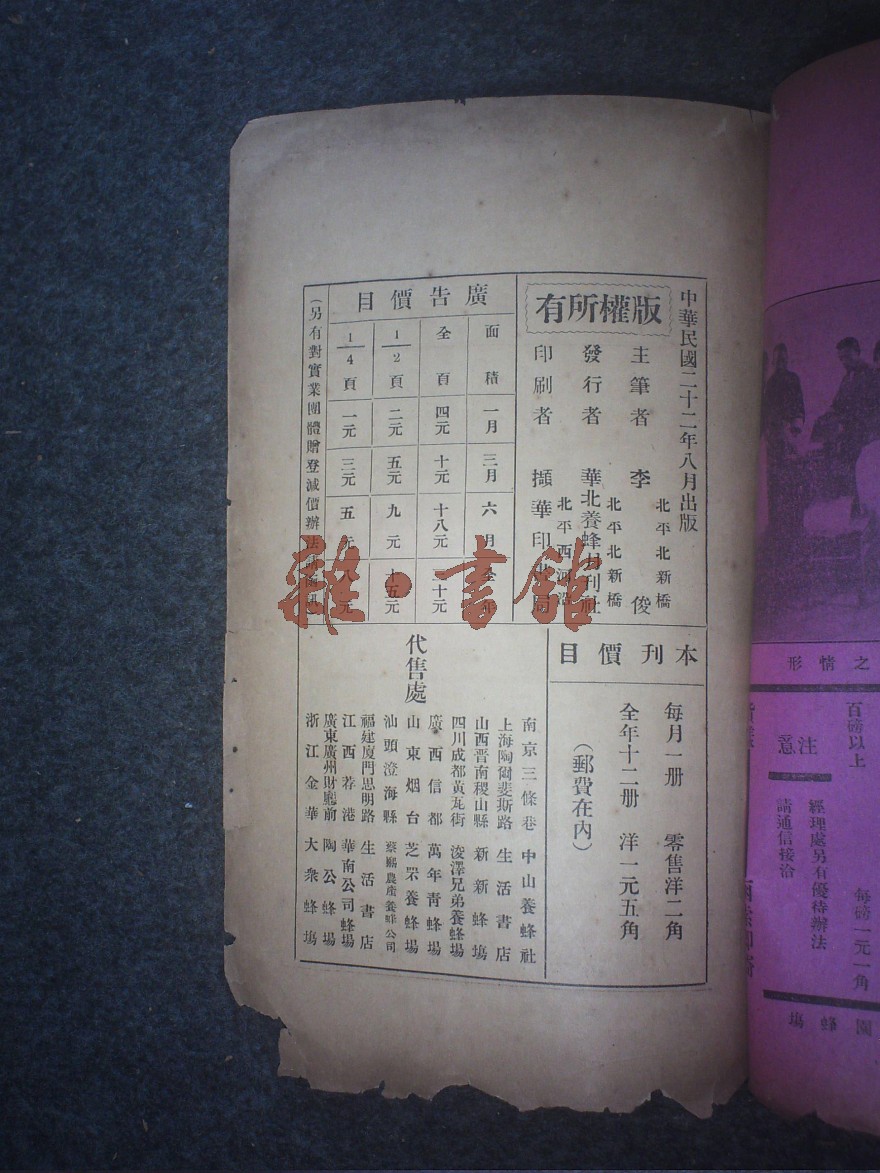 中華民國二十二年八月出版
版權所有
北平北新橋
主筆者 李俊
北平北新橋
發行者 華北養蜂月刊社
北平西河沿
印刷者 擷華印書局
廣告價目
面積 一月 三月 六月 全年
全頁 四元 十元 十八元 三十元
1/2頁 二元 五元 九元 十五元
1/4頁 一元 三元 五元 八元
(另有對實業團體贈登減價辦法
本刊價目
每月一册 零售洋二角
全年十二册 洋一元五角
(郵費在內)
代售處
南京三條巷 中山養蜂社
上海陶爾斐斯路 生活書店
山西晉南稷山縣 新新蜂塲
四川成都黃瓦街 浚澤兄弟養蜂場
廣西信都 萬年青蜂場
山東烟台 芝罘養蜂場
汕頭澄海縣 蔡鷗農產養蜂公司
福建廈門思明路 生活書店
江西荐港 華南公司蜂場
廣東廣州財廳前 陶公蜂塲
浙江金華 大衆蜂塲
雜·書館
之情形
百磅以上
每磅一元一角
注意
經理處另有優待辦法
請通信接洽
園蜂塲